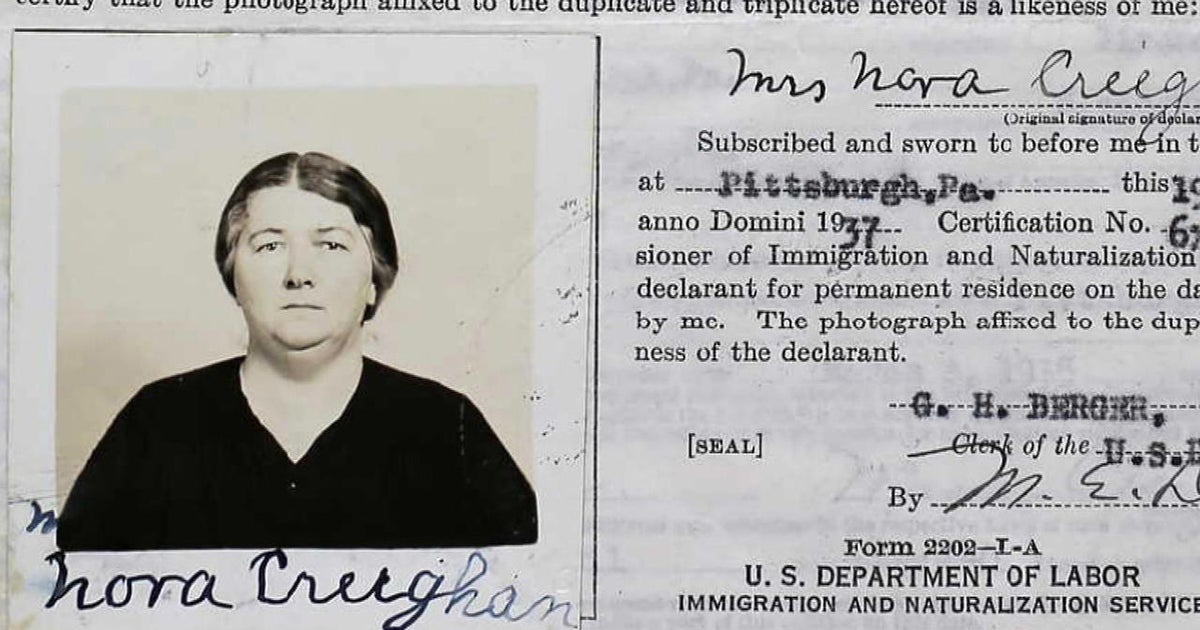 certify that the photograph affixed to the duplicate and triplicate hereof is a likeness of me:
Mrs Nora Creeg
(Original signature of declar
Subscribed and sworn to before me in t
at Pittsburgh,Pa. this 19
anno Domini 1937 Certification No. 6
sioner of Immigration and Naturalization
declarant for permanent residence on the da
by me. The photograph affixed to the dup
ness of the declarant.
G. H. BERGER,
[SEAL] Clerk of the U.S.
By M. E.
Form 2202—L-A
U. S. DEPARTMENT OF LABOR
IMMIGRATION AND NATURALIZATION SERVICE
Nora Creeghan